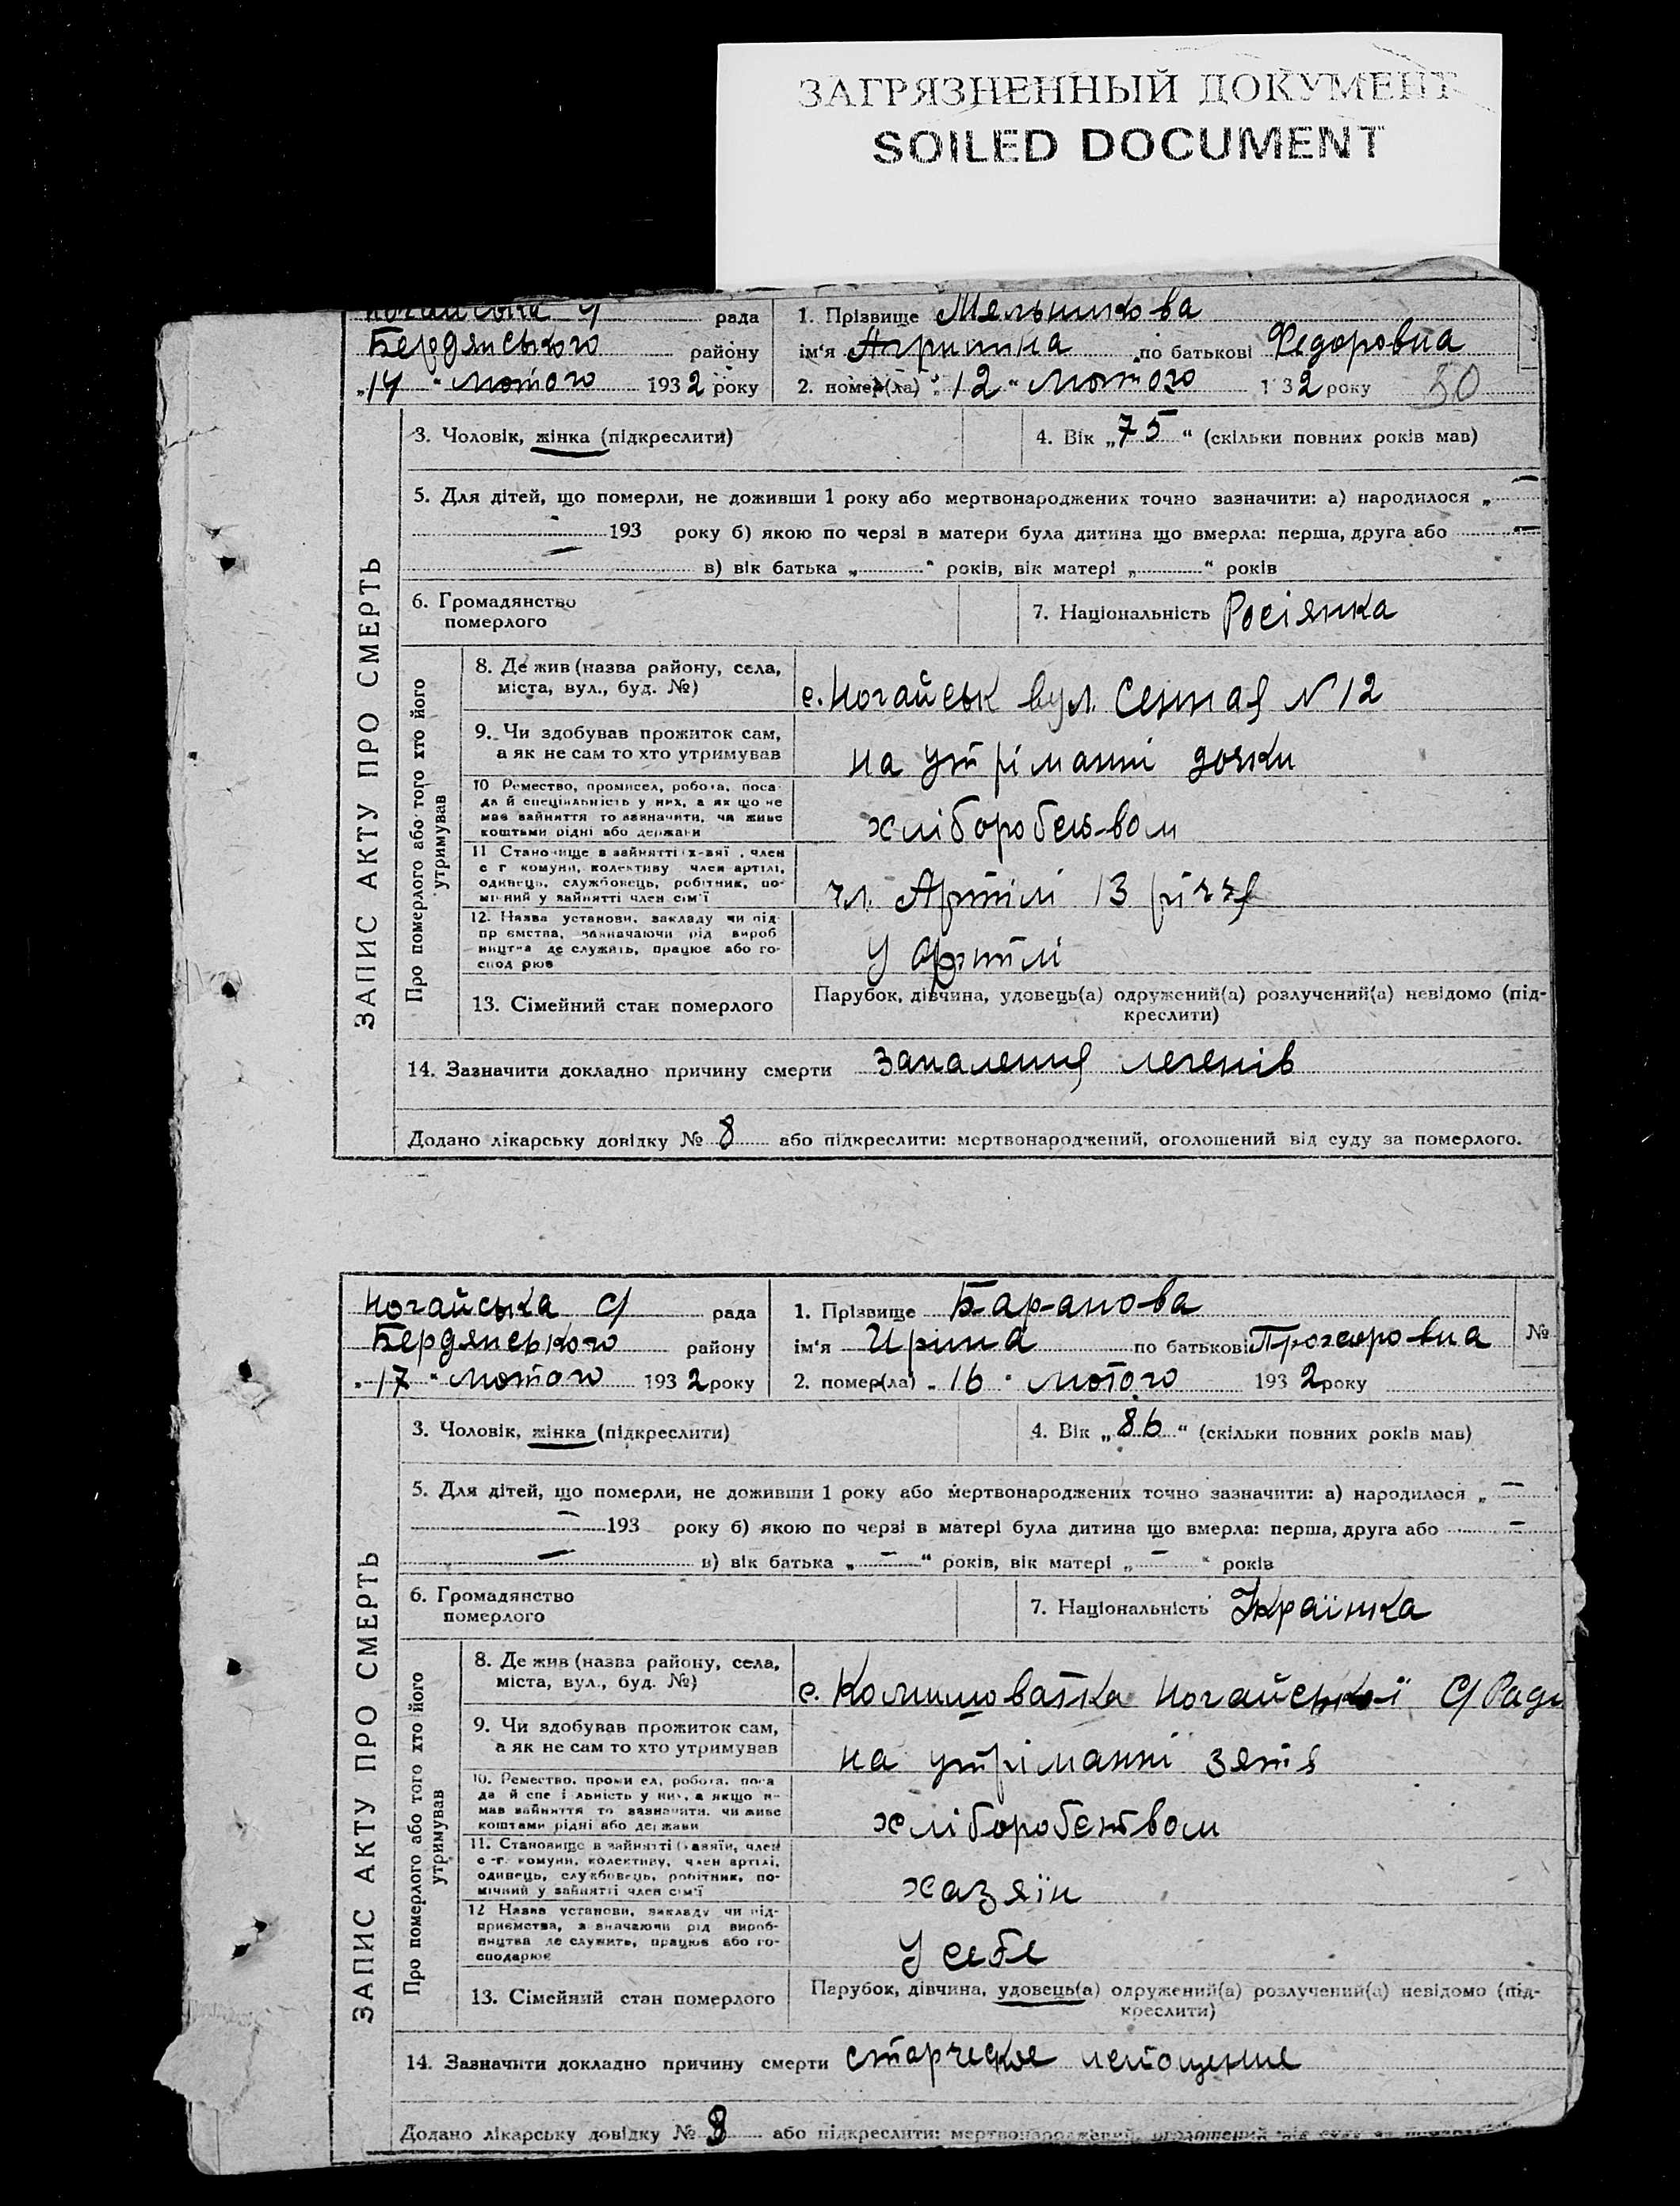 ЗАГРЯЗНЕННЫЙ ДОКУМЕНТ
SOILED DOCUMENT
Ногайська С/ рада
Бердянського району
„14“ лютого 1932 року
1. Прізвище Мельникова
ім‘я Агрипина по батькові Федоровна
2. помер(ла) „12“ лютого 132 року 50
ЗАПИС АКТУ ПРО СМЕРТЬ
3. Чоловік, жінка (підкреслити)
4. Вік „75“ (скільки повних років мав)
5. Для дітей, що померли, не доживши 1 року або мертвонароджених точно зазначити: а) народилося „ —
— 193 року б) якою по черзі в матери була дитина що вмерла: перша, друга або —
— в) вік батька „ “ років, вік матері „ “ років
6. Громадянство
померлого
7. Національність Росіянка
Про померлого або того хто його
утримував
8. Де жив (назва району, села,
міста, вул., буд. №)
с. Ногайськ вул. Сенная N 12
9. Чи здобував прожиток сам,
а як не сам то хто утримував
на утріманні дочки
10 Ремество, промисел, робота, поса-
да й спеціальність у них, а як що не
має зайняття то зазначити, чи живе
коштами рідні або держави
хліборобств-вом
11 Становище в зайнятті х-вяї, член
с г комуни, колективу член артілі,
одинець, службовець, робітник, по-
мічний у зайнятті член сім‘ї
чл. Артілі 13 річчя
12. Назва установи, закладу чи під-
приємства, зазначаючи рід вироб
ництва де служить, працює або го-
сподарює
У артілі
13. Сімейний стан померлого
Парубок, дівчина, удовець(а) одружений(а) розлучений(а) невідомо (під-
креслити)
14. Зазначити докладно причину смерти запалення легенів
Додано лікарську довідку № 8 або підкреслити: мертвонароджений, оголошений від суду за померлого.
Ногайська С/ рада
Бердянського району
„17“ лютого 1932 року
1. Прізвище Баранова
ім‘я Ирина по батькові Прохоровна
№
2. помер(ла) „16“ лютого 1932 року
ЗАПИС АКТУ ПРО СМЕРТЬ
3. Чоловік, жінка (підкреслити)
4. Вік „86“ (скільки повних років мав)
5. Для дітей, що померли, не доживши 1 року або мертвонароджених точно зазначити: а) народилося „ —
— 193 року б) якою по черзі в матері була дитина що вмерла: перша, друга або —
— в) вік батька „ — “ років, вік матері „ — “ років
6. Громадянство
померлого
7. Національність Українка
Про померлого або того хто його
утримував
8. Де жив (назва району, села,
міста, вул., буд. №)
с. Комишоватка Ногайської С/Ради
9. Чи здобував прожиток сам,
а як не сам то хто утримував
на утріманні зятя
10. Ремество, промисел, робота, поса
да й спеціальність у них, а якщо не
мав зайняття то зазначити, чи живе
коштами рідні або держави
хліборобєнтвом
11. Становище в зайнятті (хазяїн, член
с.-г. комуни, колективу, член артілі,
одинець, службовець, робітник, по-
мічний у зайнятті член сім‘ї
хазяїн
12 Назва установи, закладу чи під-
приємства, зазначаючи рід вироб-
ництва де служить, працює або го-
сподарює
У себе
13. Сімейний стан померлого
Парубок, дівчина, удовець(а) одружений(а) розлучений(а) невідомо (під-
креслити)
14. Зазначити докладно причину смерти старческое истощение
Додано лікарську довідку № 8 або підкреслити: мертвонароджений, оголошений від суду за